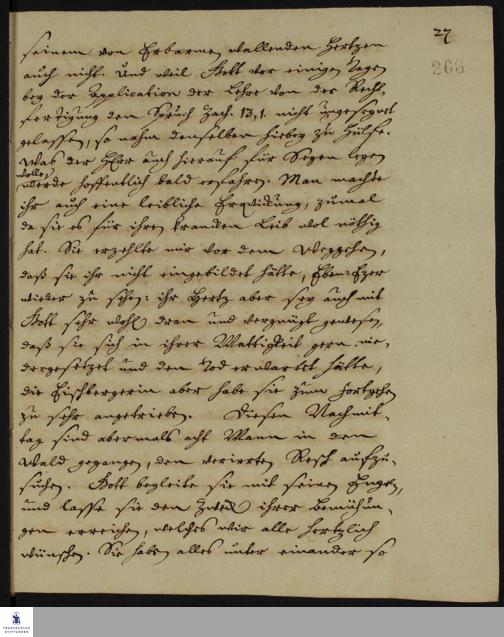 27
268
seinem von Erbarmen wallenden Hertzen
auch nicht. Und weil Gott vor einigen Tagen
bey der Application der Lehre von der Recht-
fertigung den Spruch Zach. 13,1. nicht ungesegnet
gelassen, so nahm denselben hiebey zu Hülfe.
Was der HErr auch hierauf für Segen legen
wolle,
werde hoffentlich bald erfahren. Man machte
ihr auch eine leibliche Erquickung, zumal
da sie es für ihren krancken Leib wol nöthig
hat. Sie erzehlte mir vor dem Weggehen,
daß sie ihr nicht eingebildet hätte, Eben-Ezer
wieder zu sehen: ihr Hertz aber sey auch mit
Gott sehr wohl dran und vergnügt gewesen,
daß sie sich in ihrer Mattigkeit gern nie-
dergesetzet und den Tod erwartet hätte,
die Eischbergerin aber habe sie zum Fortgehen
zu sehr angetrieben. Diesen Nachmit-
tag sind abermals acht Mann in den
Wald gegangen, den verirrten Resch aufzu-
suchen. Gott begleite sie mit seinen Engeln,
und lasse sie den Zweck ihrer Bemühun-
gen erreichen, welches wir alle hertzlich
wünschen. Sie haben alles unter einander so
FRANCKESCHE
STIFTUNGEN